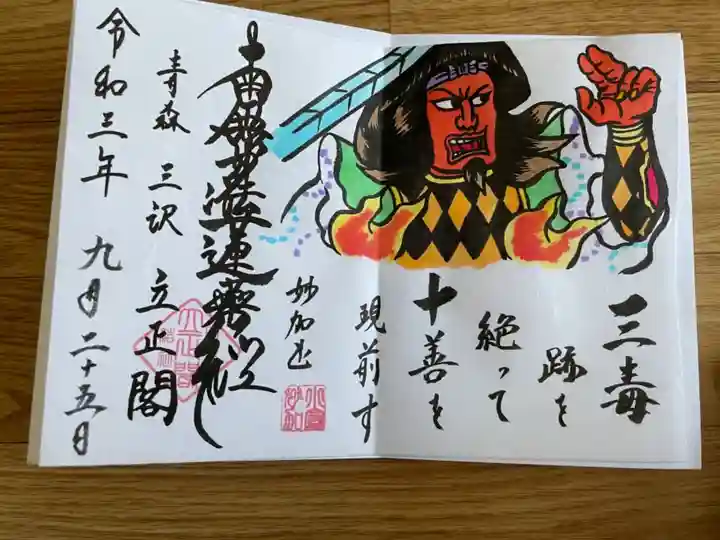 三毒
跡を
絶って
十善を
現前す
妙加 書
南無妙法蓮華経
立正閣
青森 三沢
令和三年 九月二十五日